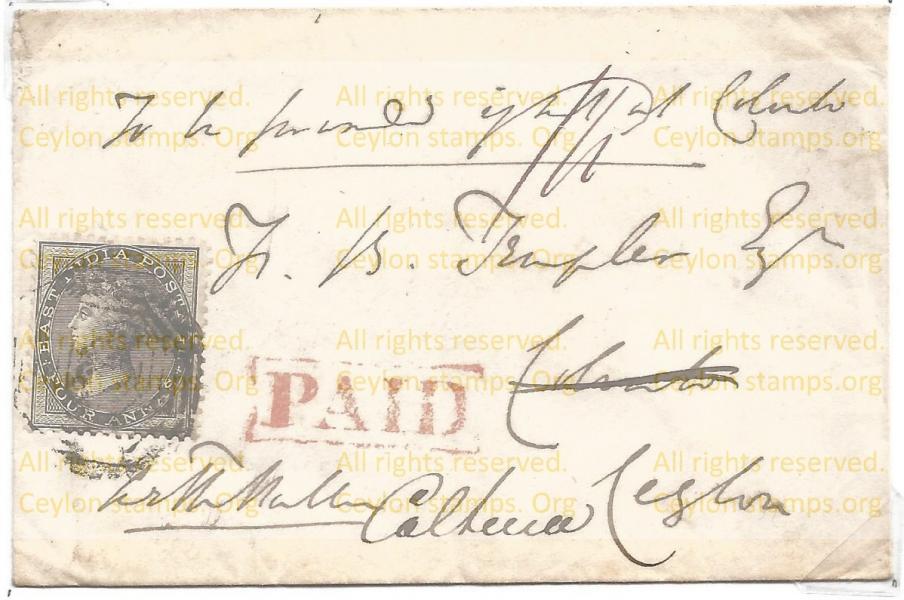 To be forwarded if not at Colombo
F. B. Templer Esqr
EAST INDIA POSTAGE
FOUR ANNAS
PAID
Colombo
Caltura Ceylon
All rights reserved. All rights reserved. All rights reserved.
Ceylon stamps. Org Ceylon stamps. Org Ceylon stamps.org
All rights reserved. All rights reserved. All rights reserved.
Ceylon stamps. Org Ceylon stamps. Org Ceylon stamps.org
All rights reserved. All rights reserved. All rights reserved.
Ceylon stamps. Org Ceylon stamps. Org Ceylon stamps.org
All rights reserved. All rights reserved. All rights reserved.
Ceylon stamps. Org Ceylon stamps. Org Ceylon stamps.org